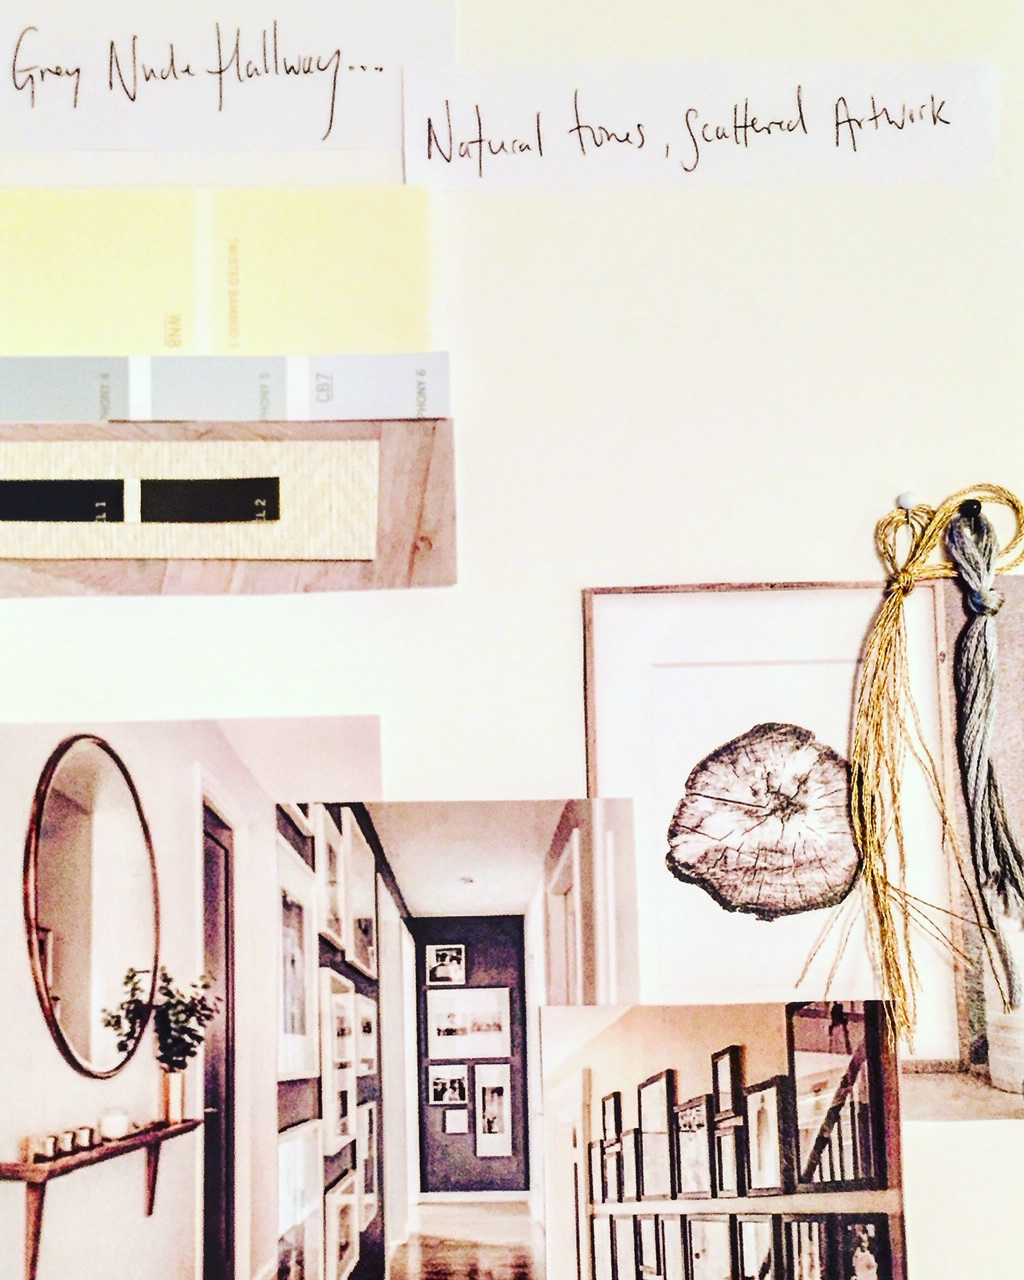 Grey Nude Hallway...
Natural tones, Scattered Artwork
TWISTED BAMBOO
WN8
PHONY 4
PHONY 5
CB7
PHONY 6
EL 1
EL 2